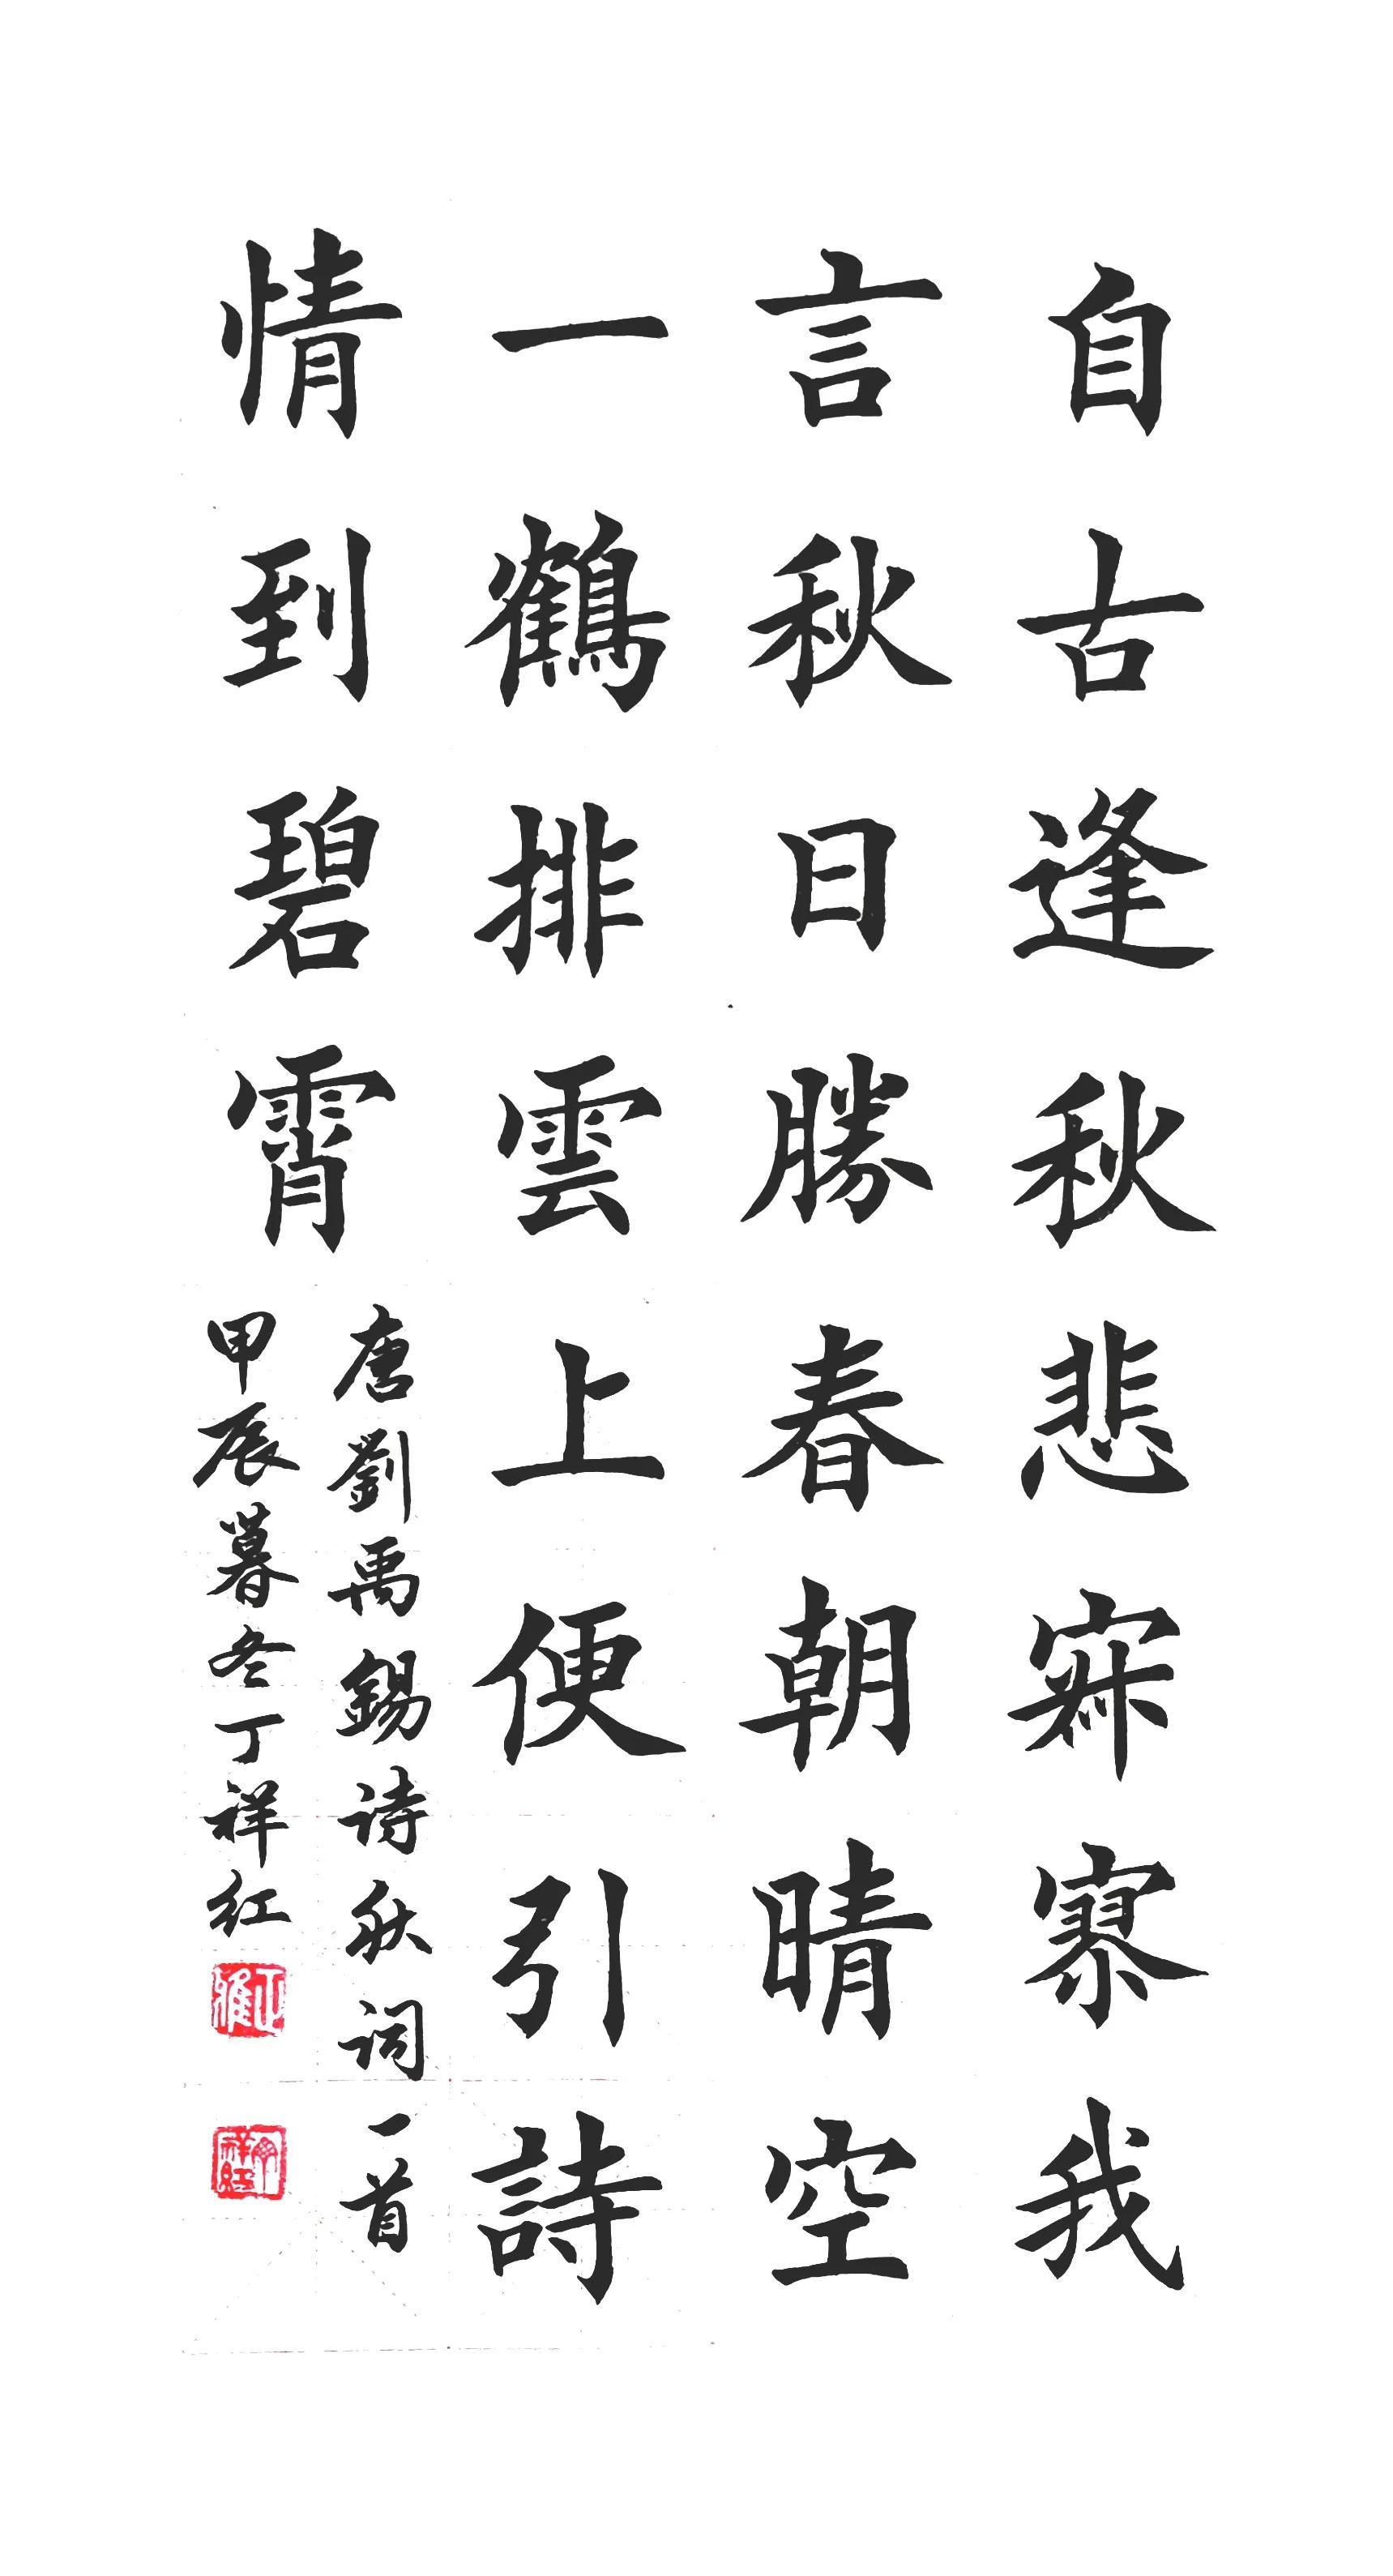 自古逢秋悲寂寥我
言秋日勝春朝晴空
一鶴排雲上便引詩
情到碧霄
唐劉禹錫诗秋词一首
甲辰暮冬丁祥红